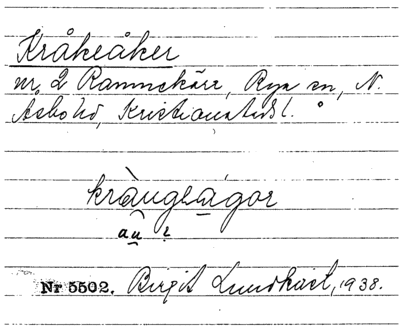 Kråkeåker
nr 2 Rammekärr, Rya sn, N.
Åsbo hd, Kristianstads l.
kràngeágor
au r
Nr 5502. Birgit Lundkvist, 1938.